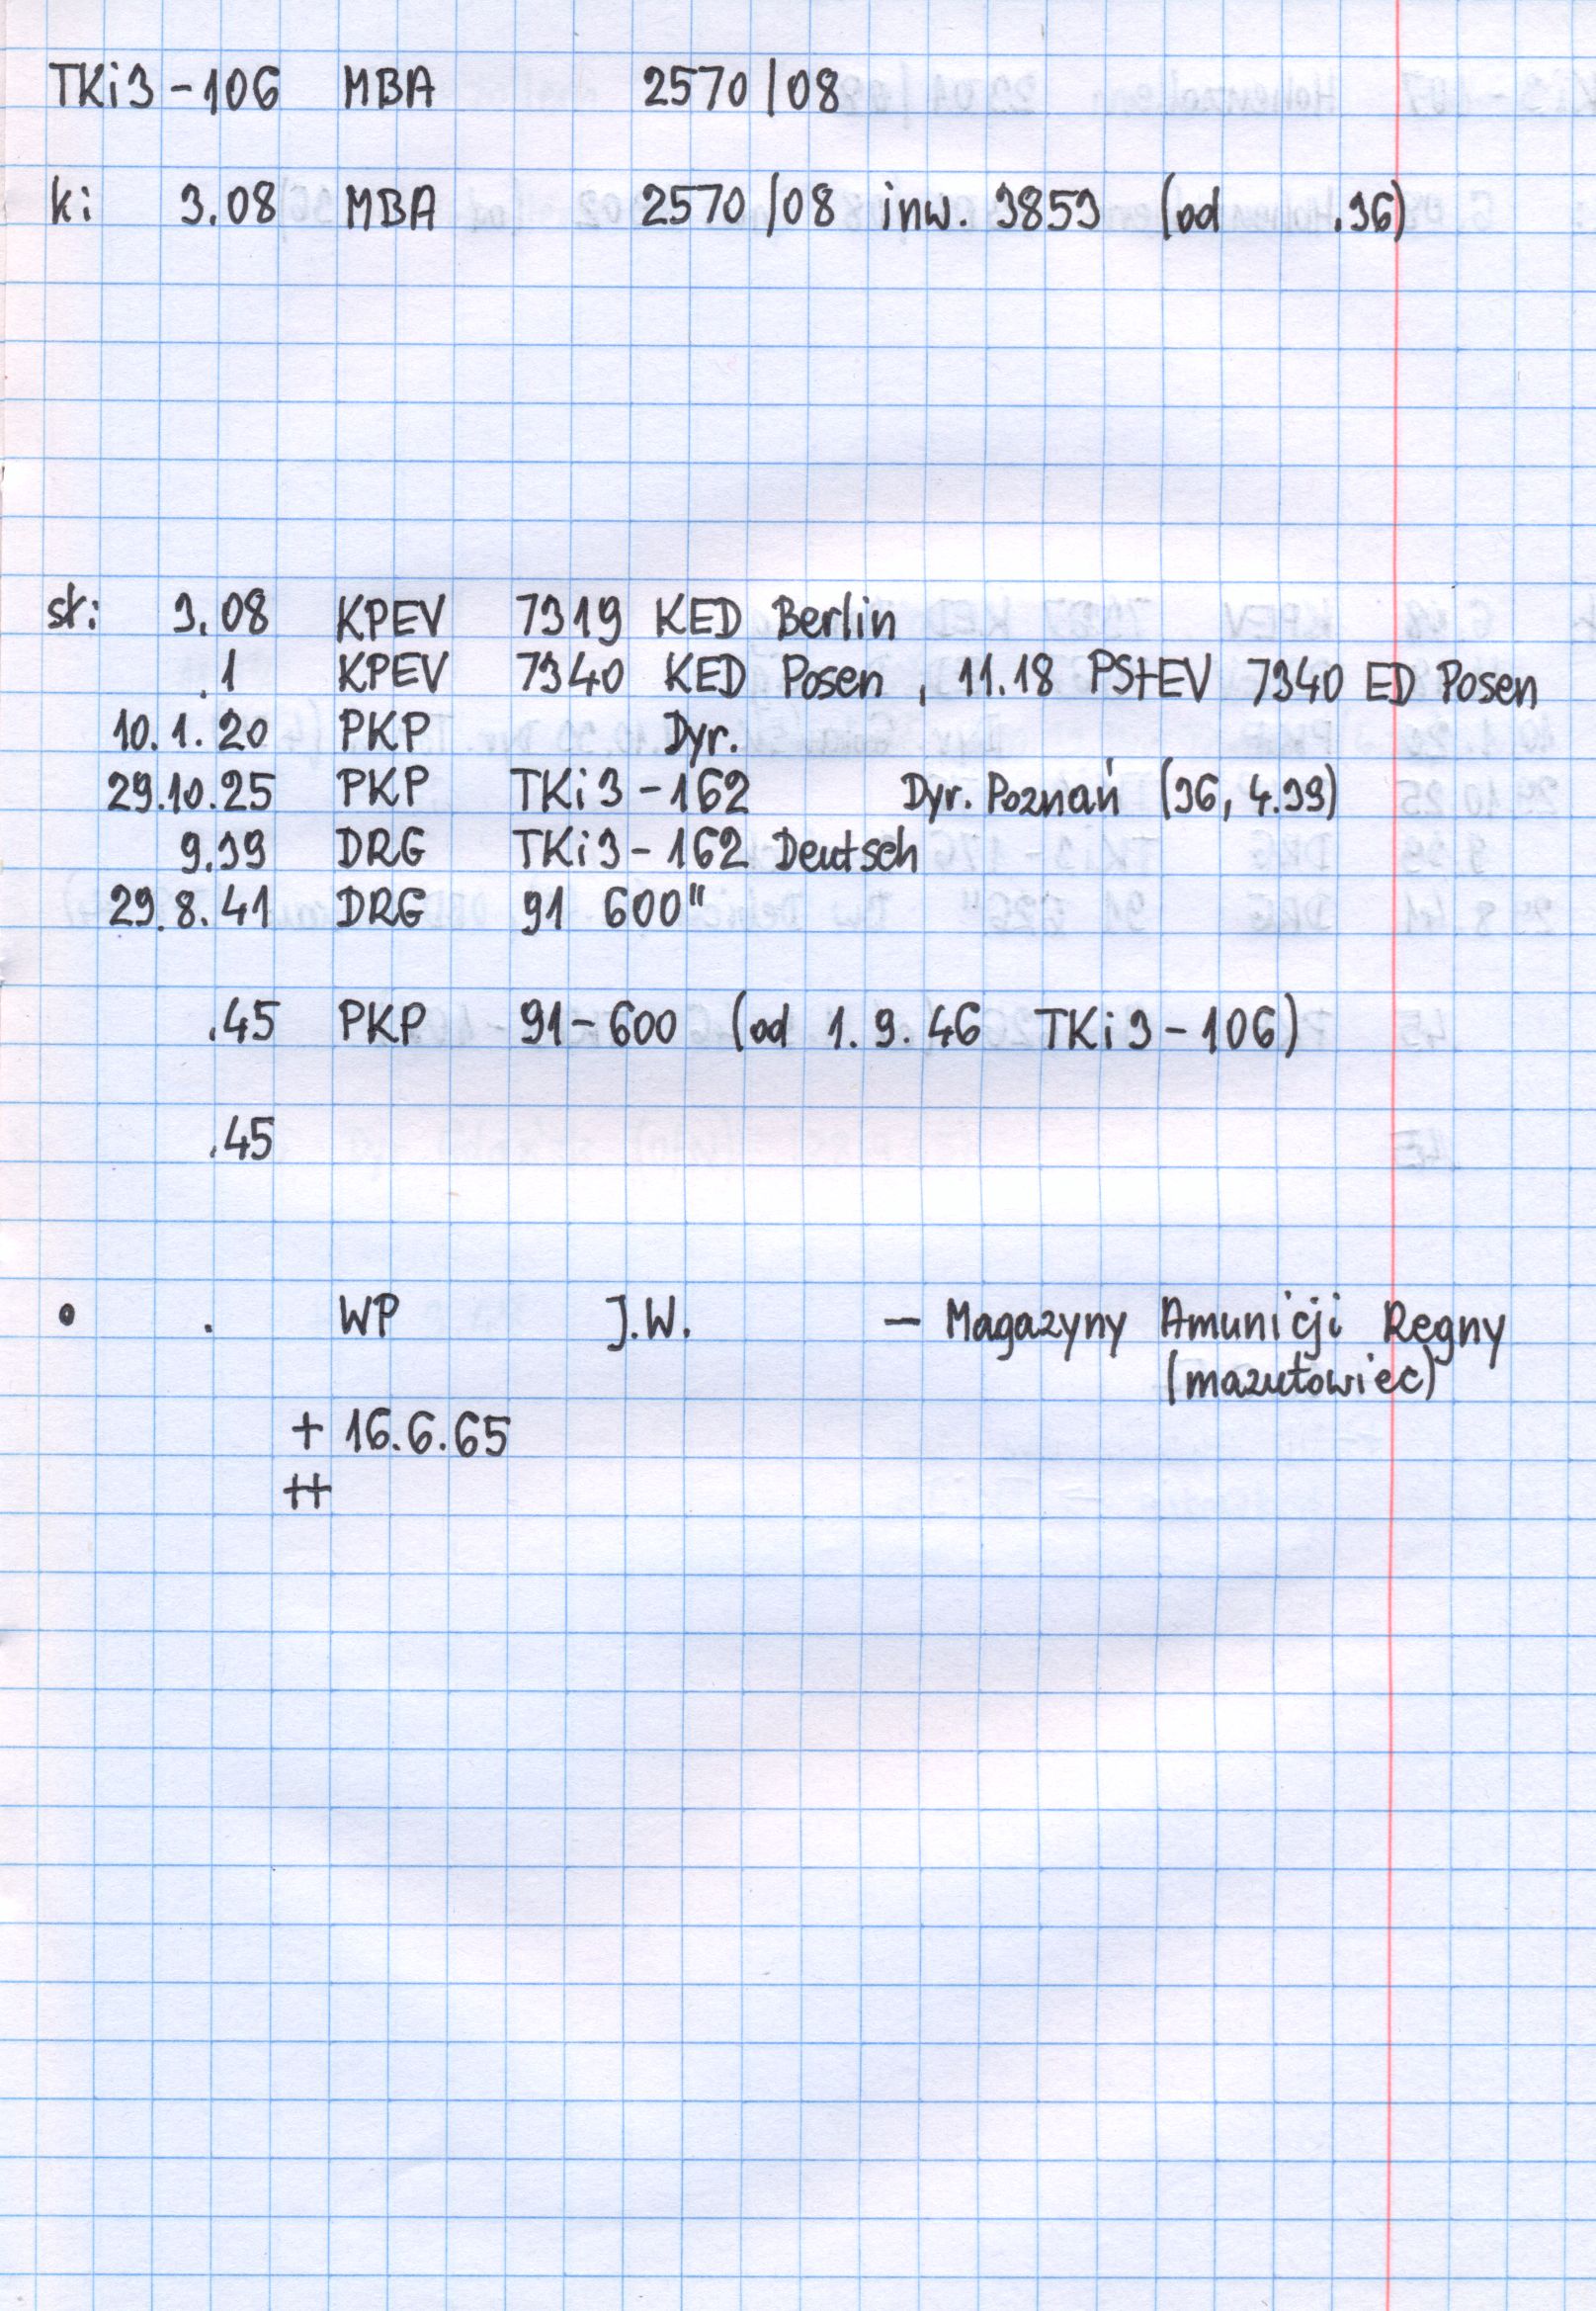 TKi3-106 MBA 2570/08
ki 3.08 MBA 2570/08 inw. 3853 (od .36)
sł: 3.08 KPEV 7319 KED Berlin
.1 KPEV 7340 KED Posen, 11.18 PStEV 7340 ED Posen
10.1.20 PKP Dyr.
29.10.25 PKP TKi3-162 Dyr. Poznań (36, 4.39)
9.39 DRG TKi3-162 Deutsch
29.8.41 DRG 91 600"
.45 PKP 91-600 (od 1.9.46 TKi3-106)
.45
• . WP J.W. — Magazyny Amunicji Regny
(mazutowiec)
+ 16.6.65
++